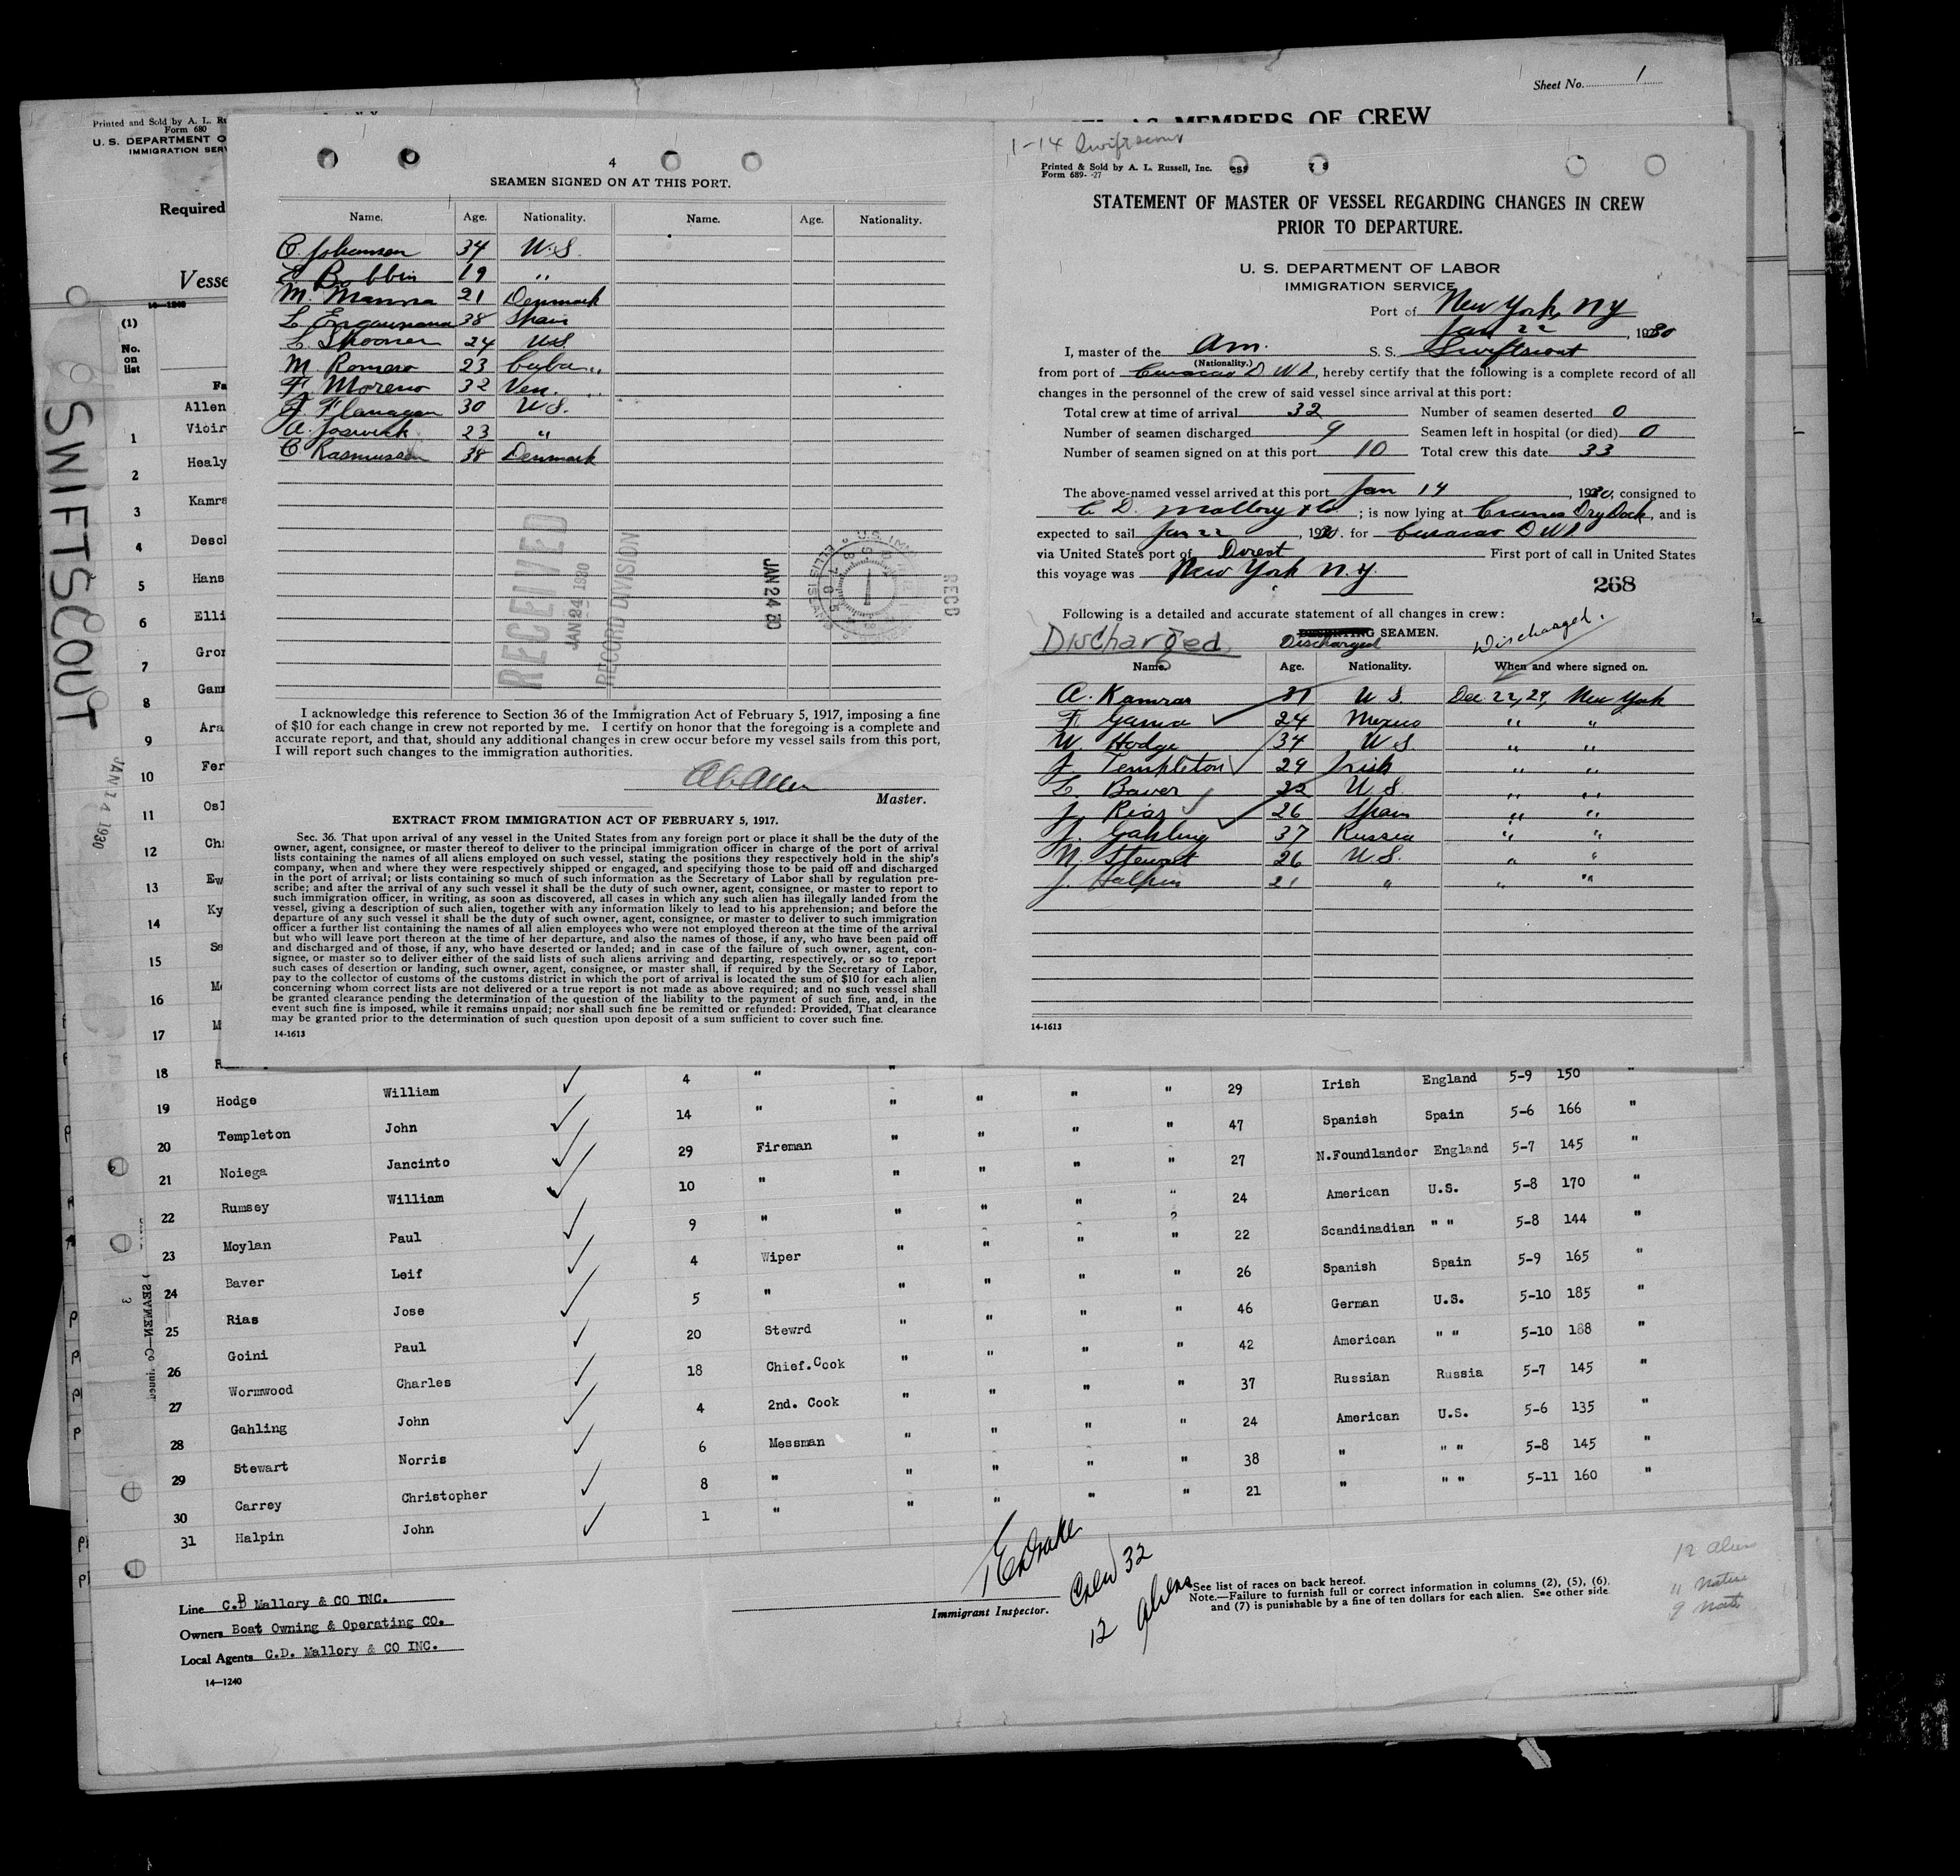 Sheet No. 1
Printed and Sold by A. L. Ru
Form 680
U. S. DEPARTMENT O
IMMIGRATION SERV
AS MEMBERS OF CREW
Required
Vesse
14-1240
(1)
No.
on
list
Fa
SWIFTSCOUT
JAN 14 1930
Allen
1 Vioir
2 Healy
3 Kamra
4 Desch
5 Hans
6 Elli
7 Gron
8 Gam
9 Ara
10 Fer
11 Osl
12 Chi
13 Ew
14 Ky
15 Se
16 Mo
17 M
18 R
4
SEAMEN SIGNED ON AT THIS PORT.
Name. Age. Nationality. Name. Age. Nationality.
C Johansen 34 U.S.
Bobbin 19 "
M. Manna 21 Denmark
L. 38 Spain
L. Spooner 24 U.S.
M. Romero 23 Cuba "
F. Moreno 32 Ven. "
J Flanagan 30 U.S.
A. Joswick 23 "
C Rasmussen 38 Denmark
RECEIVED
JAN 24 1930
RECORD DIVISION
JAN 24 30
RECD
I acknowledge this reference to Section 36 of the Immigration Act of February 5, 1917, imposing a fine
of $10 for each change in crew not reported by me. I certify on honor that the foregoing is a complete and
accurate report, and that, should any additional changes in crew occur before my vessel sails from this port,
I will report such changes to the immigration authorities.
Master.
EXTRACT FROM IMMIGRATION ACT OF FEBRUARY 5, 1917.
Sec. 36. That upon arrival of any vessel in the United States from any foreign port or place it shall be the duty of the
owner, agent, consignee, or master thereof to deliver to the principal immigration officer in charge of the port of arrival
lists containing the names of all aliens employed on such vessel, stating the positions they respectively hold in the ship's
company, when and where they were respectively shipped or engaged, and specifying those to be paid off and discharged
in the port of arrival; or lists containing so much of such information as the Secretary of Labor shall by regulation pre-
scribe; and after the arrival of any such vessel it shall be the duty of such owner, agent, consignee, or master to report to
such immigration officer, in writing, as soon as discovered, all cases in which any such alien has illegally landed from the
vessel, giving a description of such alien, together with any information likely to lead to his apprehension; and before the
departure of any such vessel it shall be the duty of such owner, agent, consignee, or master to deliver to such immigration
officer a further list containing the names of all alien employees who were not employed thereon at the time of the arrival
but who will leave port thereon at the time of her departure, and also the names of those, if any, who have been paid off
and discharged and of those, if any, who have deserted or landed; and in case of the failure of such owner, agent, con-
signee, or master so to deliver either of the said lists of such aliens arriving and departing, respectively, or so to report
such cases of desertion or landing, such owner, agent, consignee, or master shall, if required by the Secretary of Labor,
pay to the collector of customs of the customs district in which the port of arrival is located the sum of $10 for each alien
concerning whom correct lists are not delivered or a true report is not made as above required; and no such vessel shall
be granted clearance pending the determination of the question of the liability to the payment of such fine, and, in the
event such fine is imposed, while it remains unpaid; nor shall such fine be remitted or refunded: Provided, That clearance
may be granted prior to the determination of such question upon deposit of a sum sufficient to cover such fine.
14-1613
1-14 Swiftscout
Printed & Sold by A. L. Russell, Inc.
Form 689- -27
STATEMENT OF MASTER OF VESSEL REGARDING CHANGES IN CREW
PRIOR TO DEPARTURE.
U. S. DEPARTMENT OF LABOR
IMMIGRATION SERVICE
Port of New York, NY
Jan 22, 1930
I, master of the Am. S. S. Swiftscout
(Nationality.)
from port of Curacao D W I, hereby certify that the following is a complete record of all
changes in the personnel of the crew of said vessel since arrival at this port:
Total crew at time of arrival 32 Number of seamen deserted 0
Number of seamen discharged 9 Seamen left in hospital (or died) 0
Number of seamen signed on at this port 10 Total crew this date 33
The above-named vessel arrived at this port Jan 14, 1930, consigned to
C D. Mallory & Co; is now lying at Cranes Dry Dock, and is
expected to sail Jan 22, 1930. for Curacao D W I
via United States port of Direct First port of call in United States
this voyage was New York N.Y.
268
Following is a detailed and accurate statement of all changes in crew:
Discharged DESERTING SEAMEN. Discharged.
Discharged
Name. Age. Nationality. When and where signed on.
A. Kamras 31 U S. Dec 22, 29, New York
F. Gama 24 Mexico " "
W. Hodge 34 U S. " "
J Templeton 29 Irish " "
L. Baver 22 U S. " "
J. Rias 26 Spain " "
J. Gahling 37 Russia " "
N. Stewart 26 U S. " "
J. Halpin 21 " " "
14-1613
19 Hodge William 4 " " " " " 29 Irish England 5-9 150 "
20 Templeton John 14 " " " " " 47 Spanish Spain 5-6 166 "
21 Noiega Jancinto 29 Fireman " " " " 27 N.Foundlander England 5-7 145 "
22 Rumsey William 10 " " " " " 24 American U.S. 5-8 170 "
23 Moylan Paul 9 " " " " " 22 Scandinadian " " 5-8 144 "
24 Baver Leif 4 Wiper " " " " 26 Spanish Spain 5-9 165 "
25 Rias Jose 5 " " " " " 46 German U.S. 5-10 185 "
26 Goini Paul 20 Stewrd " " " " 42 American " " 5-10 188 "
27 Wormwood Charles 18 Chief.Cook " " " " 37 Russian Russia 5-7 145 "
28 Gahling John 4 2nd. Cook " " " " 24 American U.S. 5-6 135 "
29 Stewart Norris 6 Messman " " " " 38 " " " 5-8 145 "
30 Carrey Christopher 8 " " " " " 21 " " " 5-11 160 "
31 Halpin John 1 "
Line C.B Mallory & CO INC.
Owners Boat Owning & Operating CO.
Local Agents C.D. Mallory & CO INC.
14-1240
Immigrant Inspector.
Crew 32
12 aliens
*See list of races on back hereof.
Note.—Failure to furnish full or correct information in columns (2), (5), (6),
and (7) is punishable by a fine of ten dollars for each alien. See other side.
12 alien
11 native
9 nat